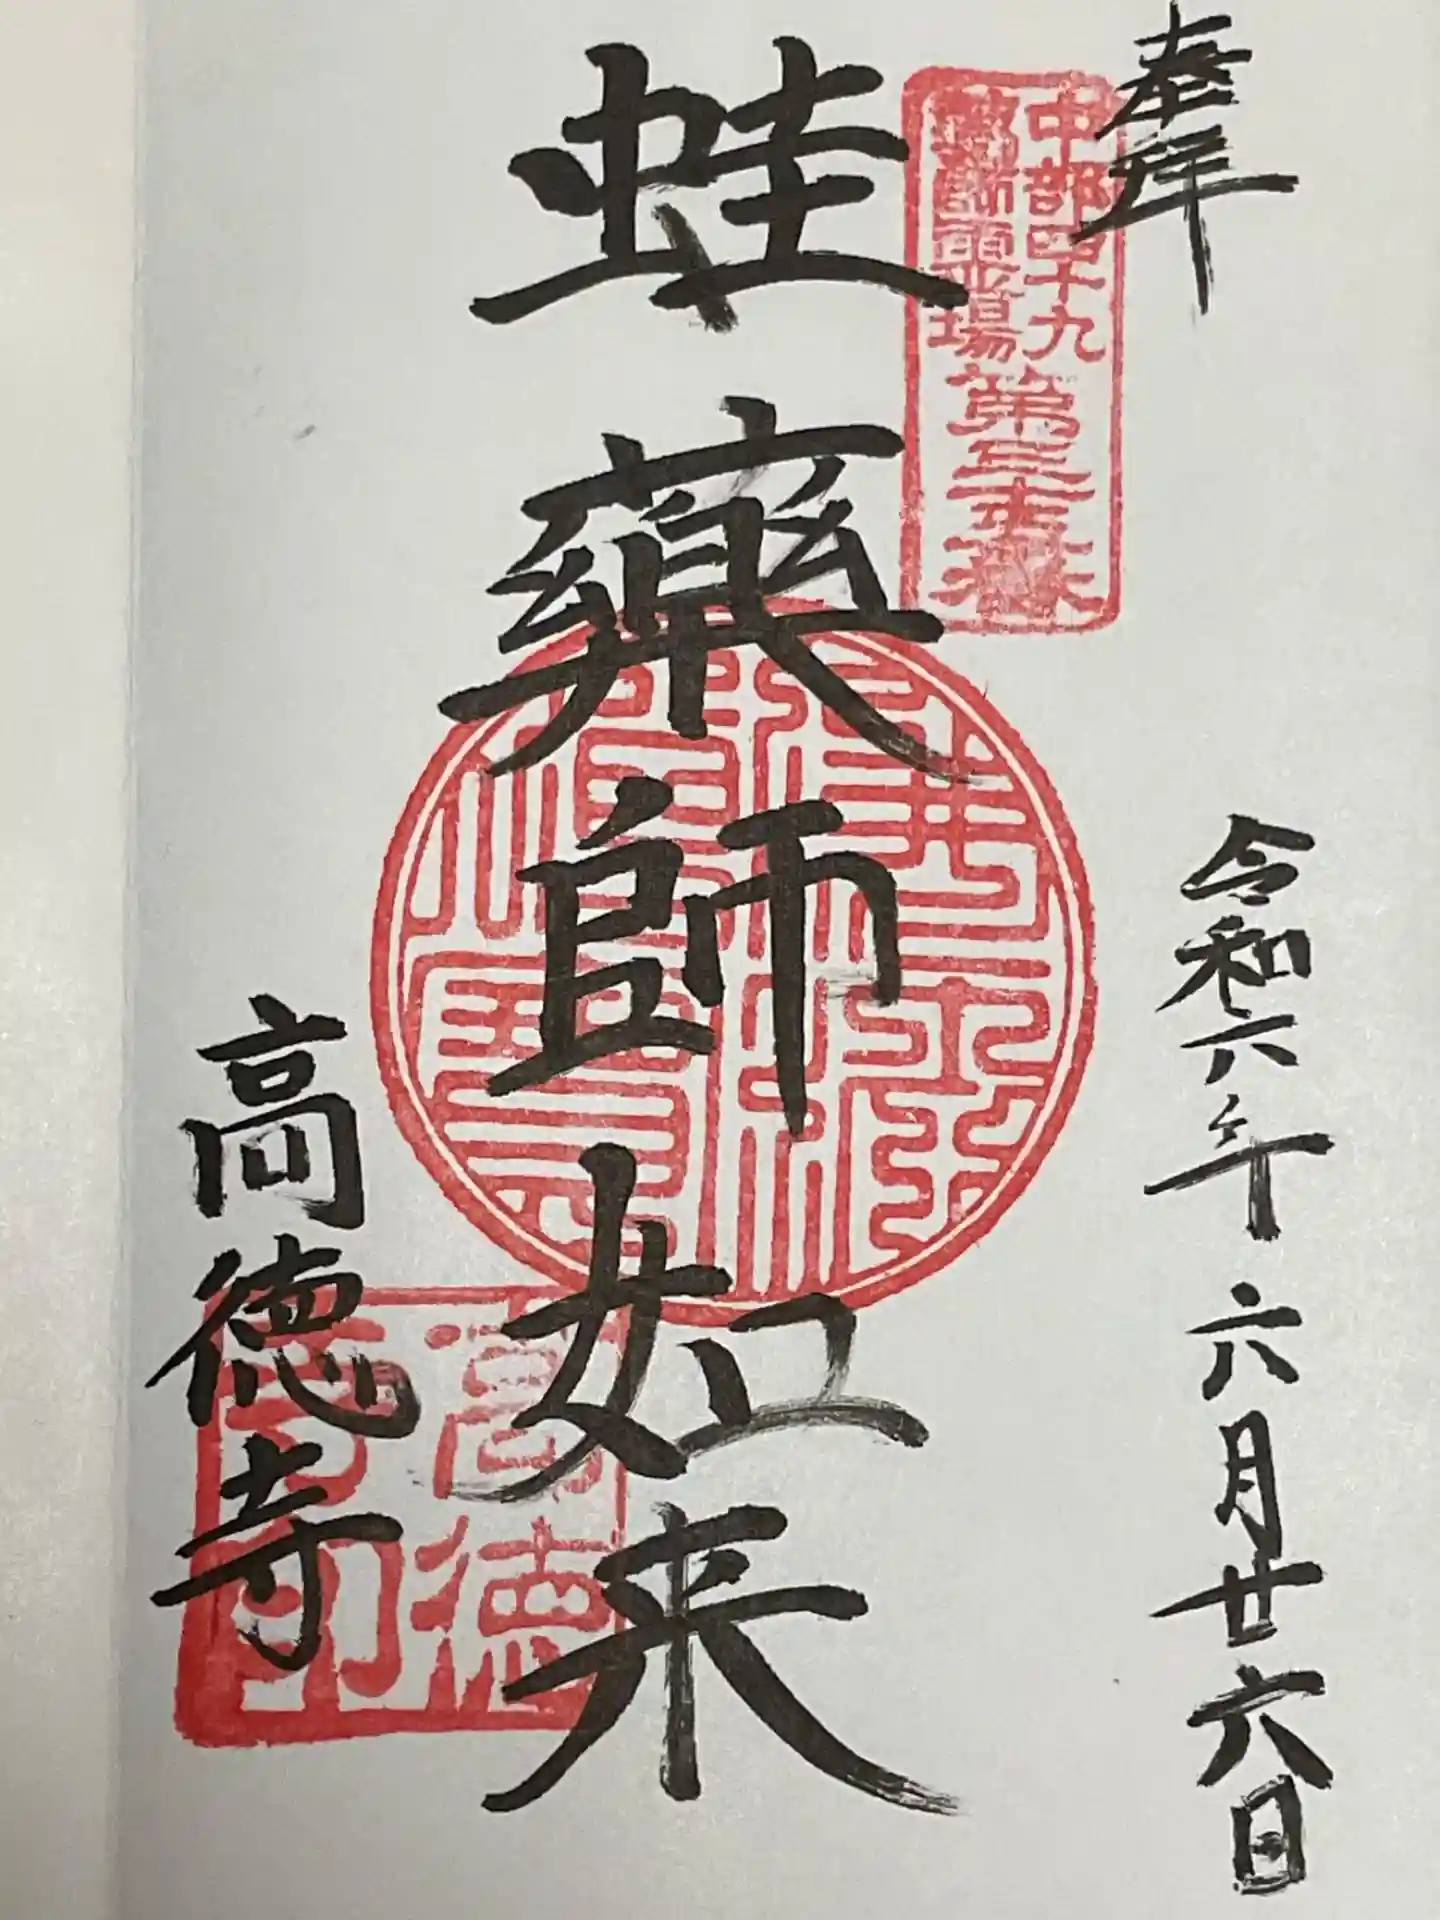 奉拝
令和六年六月廿六日
中部四十九
薬師霊場
第三十番
蛙薬師如来
高徳寺
高徳
寺印